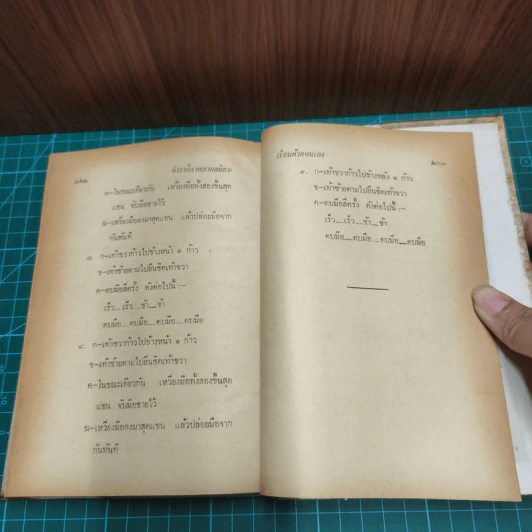 ๑๖๒
ตำราลีลาศสากลนิยม
ค-ในขณะเดียวกัน เหวี่ยงมือทั้งสองขึ้นสุด
แขน จับมือชายไว้
ฆ-เหวี่ยงมือลงมาสุดแขน แล้วปล่อยมือจาก
กันทันที
๗. ก-เท้าขวาก้าวไปข้างหน้า ๑ ก้าว
ข-เท้าซ้ายตามไปยืนชิดเท้าขวา
ค-ตบมือสี่ครั้ง ดังต่อไปนี้ :-
เร็ว...เร็ว...ช้า...ช้า
ตบมือ...ตบมือ...ตบมือ...ตบมือ
๘. ก-เท้าขวาก้าวไปข้างหน้า ๑ ก้าว
ข-เท้าซ้ายตามไปยืนชิดเท้าขวา
ค-ในขณะเดียวกัน เหวี่ยงมือทั้งสองขึ้นสุด
แขน จับมือชายไว้
ฆ-เหวี่ยงมือลงมาสุดแขน แล้วปล่อยมือจาก
กันทันที
เรียนด้วยตนเอง
๑๖๓
๙. ก-เท้าขวาก้าวไปข้างหลัง ๑ ก้าว
ข-เท้าซ้ายตามไปยืนชิดเท้าขวา
ค-ตบมือสี่ครั้ง ดังต่อไปนี้ :-
เร็ว...เร็ว...ช้า...ช้า
ตบมือ...ตบมือ...ตบมือ...ตบมือ